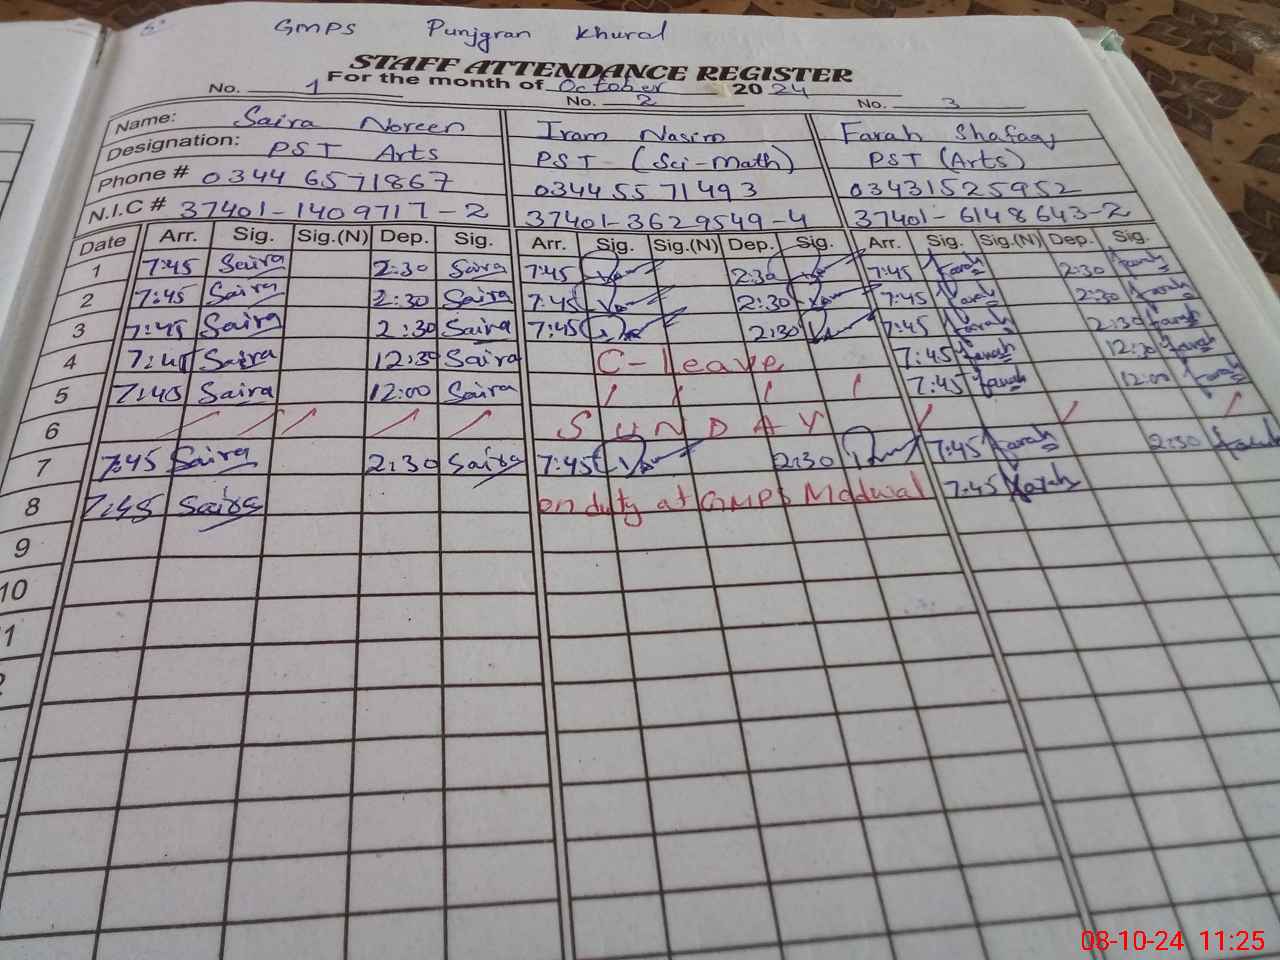 GMPS Punjgran Khural
STAFF ATTENDANCE REGISTER
For the month of October 2024
No. 1 No. 2 No. 3
Name: Saira Noreen Iram Nasim Farah Shafaq
Designation: PST Arts PST (Sci-Math) PST (Arts)
Phone # 0344 6571867 03445571493 03431525952
N.I.C # 37401-1409717-2 37401-3629549-4 37401-6148643-2
Date Arr. Sig. Sig.(N) Dep. Sig. Arr. Sig. Sig.(N) Dep. Sig. Arr. Sig. Sig.(N) Dep. Sig.
1 7:45 Saira 2:30 Saira 7:45 2:30 7:45 Farah 2:30 Farah
2 7:45 Saira 2:30 Saira 7:45 2:30 7:45 Farah 2:30 Farah
3 7:45 Saira 2:30 Saira 7:45 2:30 7:45 Farah 2:30 Farah
4 7:45 Saira 12:30 Saira C-Leave 7:45 Farah 12:30 Farah
5 7:45 Saira 12:00 Saira 7:45 Farah 12:00 Farah
6 SUNDAY
7 7:45 Saira 2:30 Saira 7:45 2:30 7:45 Farah 2:30 Farah
8 7:45 Saira on duty at GMPS Modwal 7:45 Farah
9
10
1
2
08-10-24 11:25